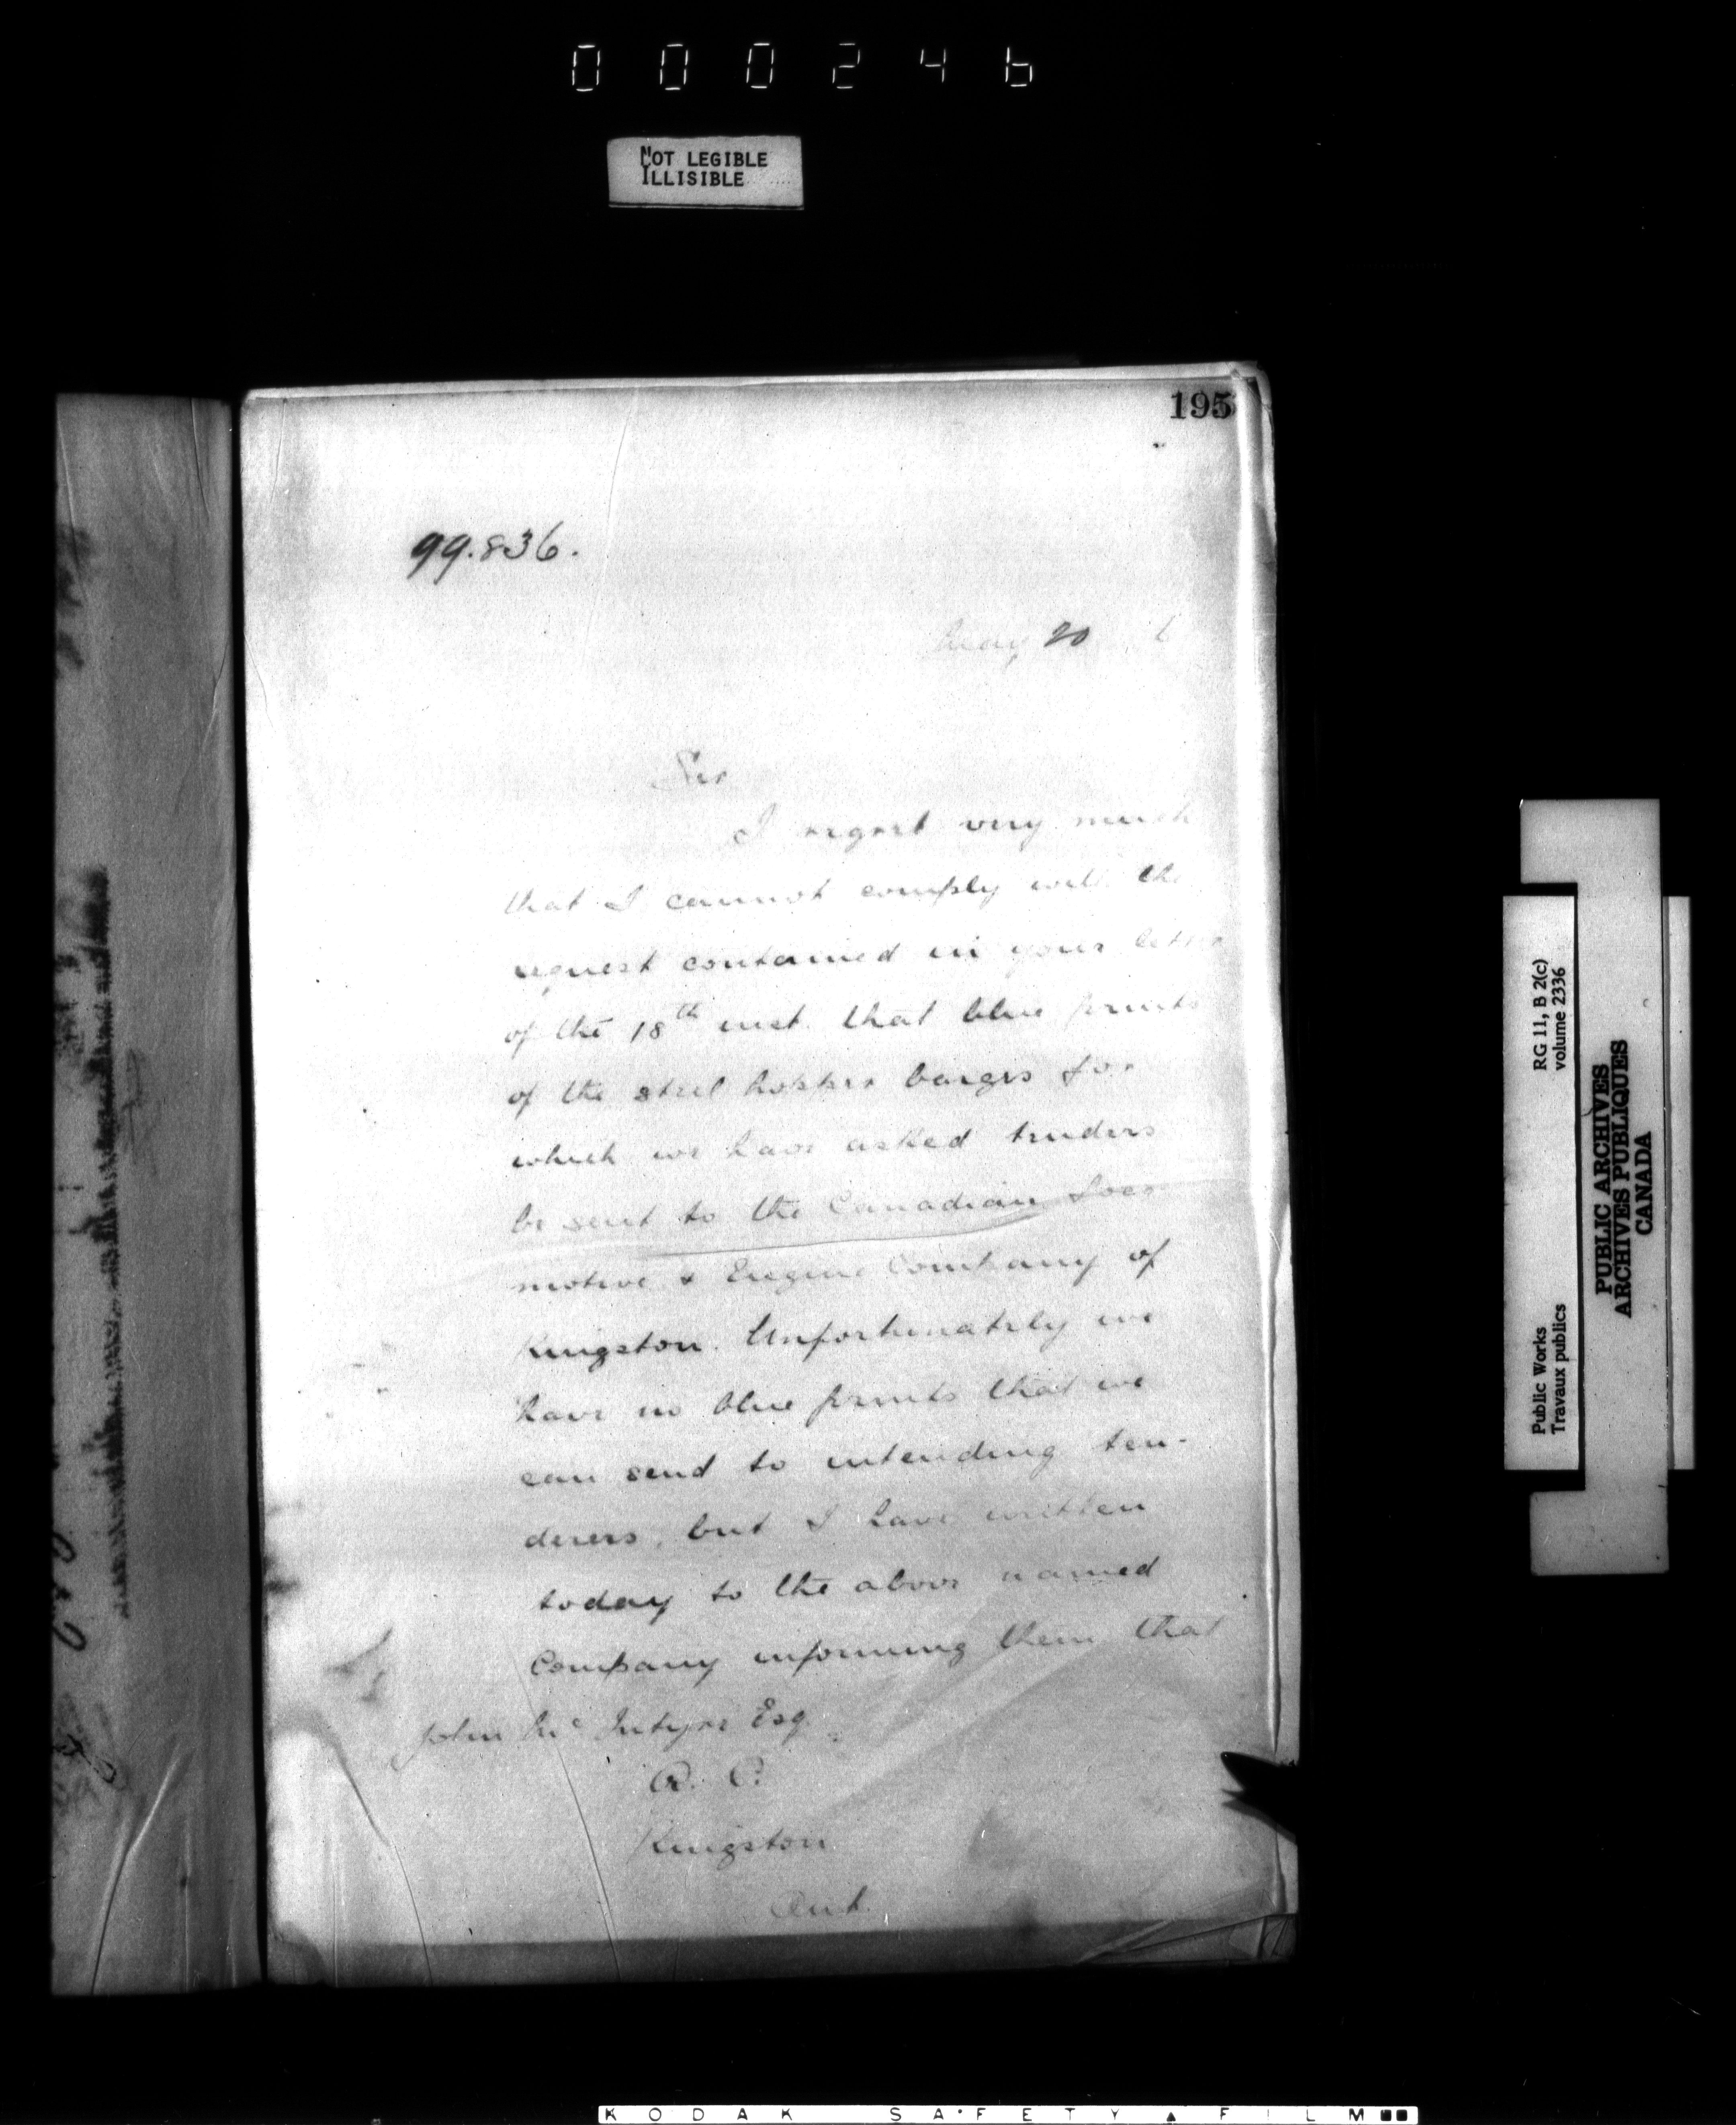 000246
NOT LEGIBLE
ILLISIBLE
195
99.836.
May 20 6
Sir
I regret very much
that I cannot comply with the
request contained in your letter
of the 18th inst. that blue prints
of the steel hopper barges for
which we have asked tenders
be sent to the Canadian Loco
motive & Engine Company of
Kingston. Unfortunately we
have no blue prints that we
can send to intending ten-
derers, but I have written
today to the above named
Company informing them that
John McIntyre Esq
Q. C.
Kingston
Ont.
RG 11, B 2(c)
volume 2336
Public Works
Travaux publics
PUBLIC ARCHIVES
ARCHIVES PUBLIQUES
CANADA
KODAK SAFETY FILM